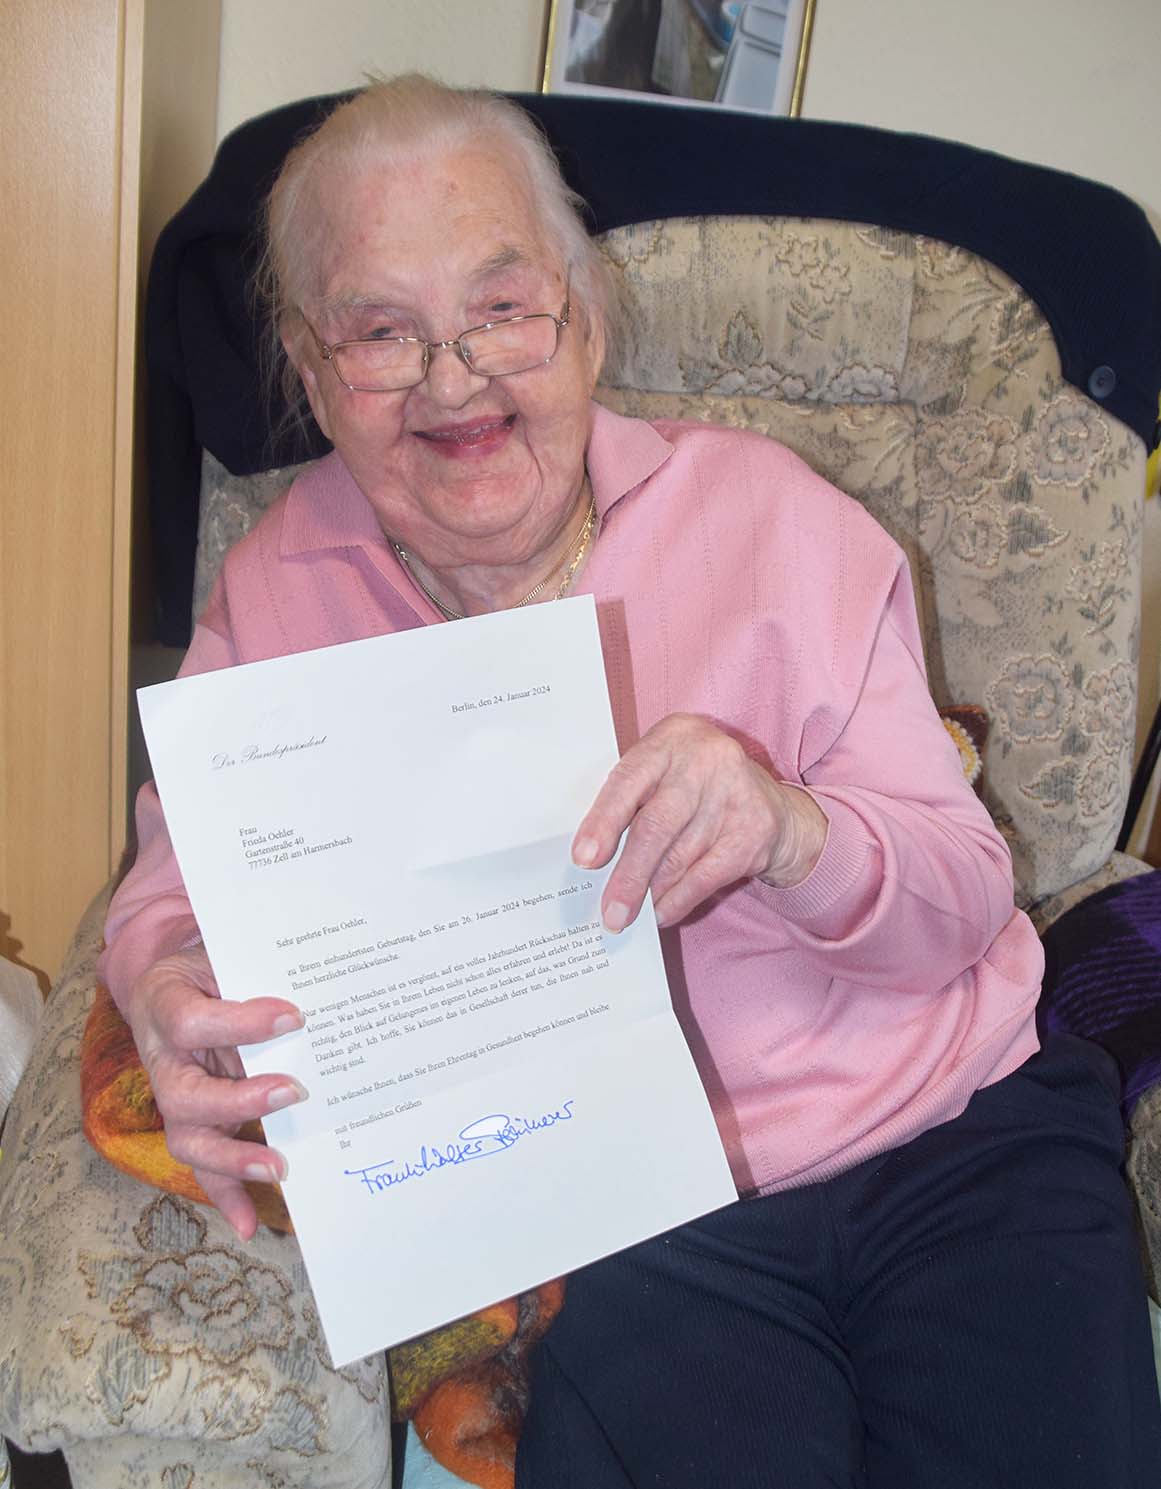 Berlin, den 24. Januar 2024
Der Bundespräsident
Frau
Frieda Oehler
Gartenstraße 40
77736 Zell am Harmersbach
Sehr geehrte Frau Oehler,
zu Ihrem einhundertsten Geburtstag, den Sie am 26. Januar 2024 begehen, sende ich
Ihnen herzliche Glückwünsche.
Nur wenigen Menschen ist es vergönnt, auf ein volles Jahrhundert Rückschau halten zu
können. Was haben Sie in Ihrem Leben nicht schon alles erfahren und erlebt! Da ist es
richtig, den Blick auf Gelungenes im eigenen Leben zu lenken, auf das, was Grund zum
Danken gibt. Ich hoffe, Sie können das in Gesellschaft derer tun, die Ihnen nah und
wichtig sind.
Ich wünsche Ihnen, dass Sie Ihren Ehrentag in Gesundheit begehen können und bleibe
mit freundlichen Grüßen
Ihr
Frank-Walter Steinmeier